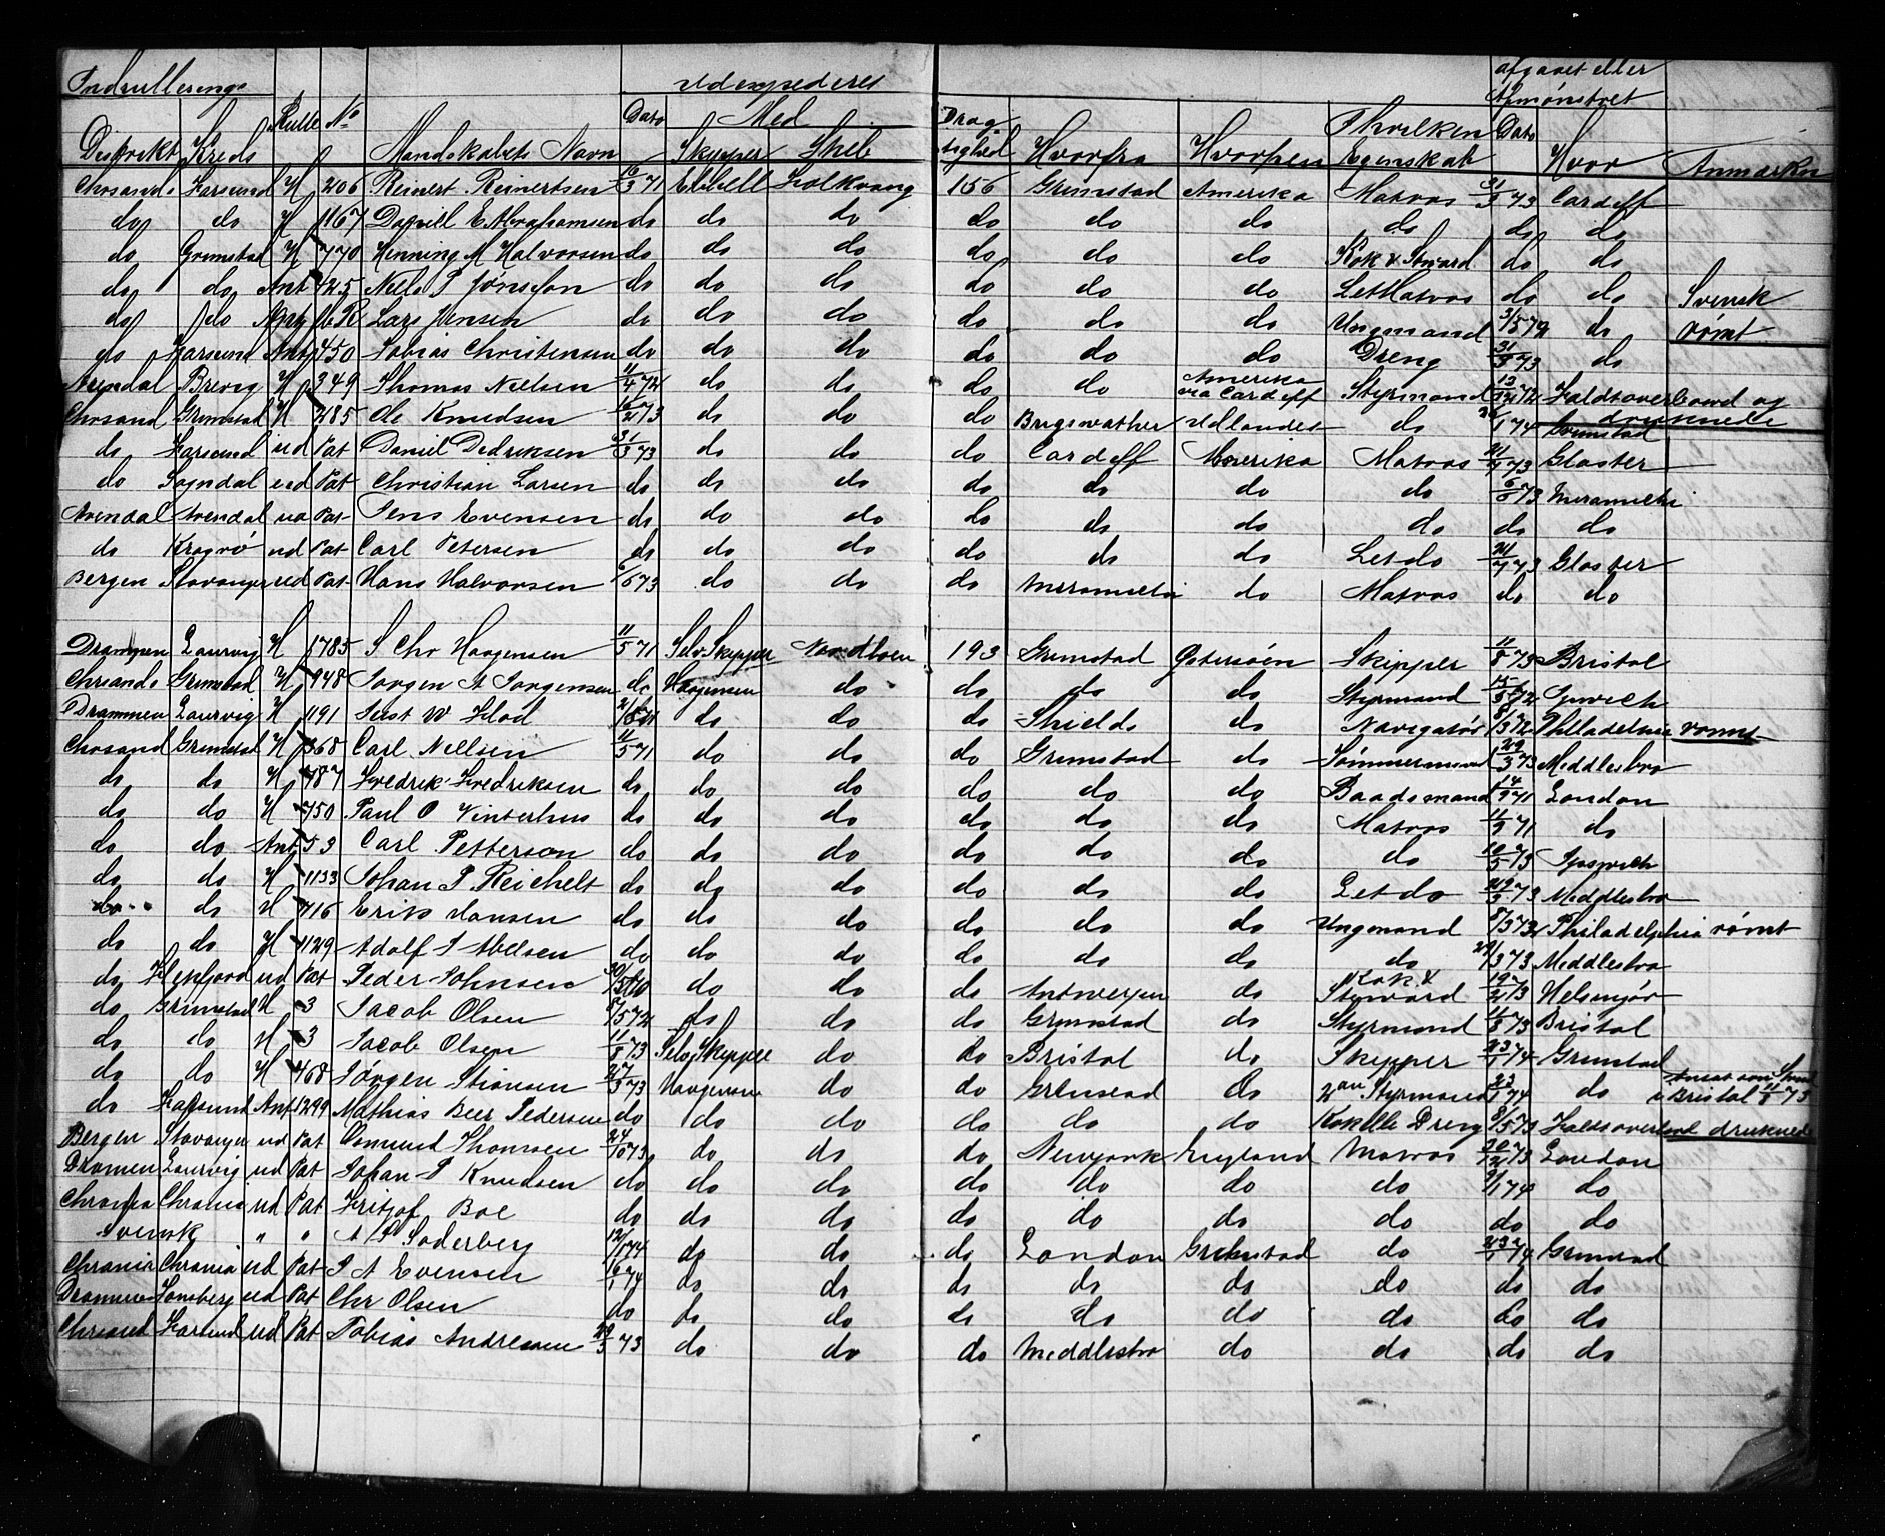 Indrulleringe Udexpederet afgaaet eller
Rulle No Dato Med Dræg- I hvilken Dato Afmønstret
Distrikt Kreds Mandskabets Navn Skipper Skib tighed Hvorfra Hvorhen Egenskab Hvor Anmærkn
Farsund H 206 Reinert Reinertsen 16/3 71 156 Grimstad Amerika Matros 31/3 73 Cardiff
do do H 1167 E. Abrahamsen do do do do do do do do do
do Grimstad H 770 Henning M Halvorsen do do do do do do Kok & Steward do do
do do Ant 425 Nells P Jönsson do do do do do do Let Matros do do Svensk
do do Lars Jensen do do do do do do Ungmand do rømt
do Farsund Ant 450 Tobias Christensen do do do do do do Dreng 31/3 73 do
Arendal Brevig H 349 Thomas Nielsen 11/4 72 do do do do Amerika via Cardiff Styrmand 13/12 72 Faldt overbord og druknede
Chrsand Grimstad H 285 Ole Knudsen 16/2 73 do do do Brigewather Udlandet do Grimstad
do Farsund ud Pat Daniel Dedriksen 31/3 73 do do do Cardiff Amerika Matros 21/7 73 Gloster
do Sogndal ud Pat Christian Larsen do do do do do do do 6/6 73 Miramichi
Arendal Arendal ud Pat Jens Evensen do do do do do do do do do
do Kragerø ud Pat Carl Petersen do do do do do do Let do 21/7 73 Gloster
Bergen Stavanger ud Pat Hans Halvorsen 6/6 73 do do do Miramichi do Matros do do
Drammen Laurvig H 1785 S Chr Haagensen 11/5 71 Selv Skipper 193 Grimstad Østersøen Skipper 11/8 73 Bristol
Chrsands Grimstad H 948 Jørgen A Jørgensen do Haagensen do do do do Styrmand 15/5 72 Ipswich
Drammen Laurvig H 1191 Just W Flod do do do Shields do Navigatør 8/3 72 Philladelphia rømt
Chrsand Grimstad H 368 Carl Nielsen 11/5 71 do do do Grimstad do Tømmermand 29/3 73 Middlesbro
do do H 487 Fredrik Fredriksen do do do do do do Baadsmand 14/9 71 London
do do H 750 Paul O Vinterhus do do do do do do Matros 11/9 71 do
do do Ant 53 Carl Petterson do do do do do do do 10/5 73 Ipswich
do do H 1133 Johan P. Reichelt do do do do do do Let do 29/3 73 Middlesbro
do do H 716 Eriks Hansen do do do do do do Ungmand 8/3 72 Philadelphia rømt
do do H 1129 Adolf T Abelsen do do do do do do do 29/3 73 Middlesbro
do Flekefjord ud Pat Peder Johnsen do do do Antwerpen do Kok & Steward 19/2 73 Helsingør
do Grimstad H 3 Jacob Olsen 8/5 72 do do do Grimstad do Styrmand 11/8 73 Bristol
do do H 3 Jacob Olsen 11/8 73 Selv Skipper do do Bristol do Skipper 23/1 74 Grimstad
do do H 468 Jørgen Stiansen 27/3 73 Haagensen do do Grimstad do 2den Styrmand 23/1 74 do Ansat som i Bristol 11/8 73
do Farsund Ant 1299 Mathias Beer Pedersen do do do do do do Kok elle Dreng 8/5 73 Faldt overbord druknede
Bergen Stavanger ud Pat Osmund Thomsen 24/10 73 do do do Newyork England Matros 20/12 73 London
Dramen Laurvig ud Pat Johan P Knudsen do do do do do do do 9/1 74 do
Chrania Chrania ud Pat Fritjof Boe do do do do do do do do do
Svensk " " A P Soderberg 12/1 74 do do do London Grimstad do 23/1 74 Grimstad
Chrania Chrania ud Pat J A Evensen 16/1 74 do do do do do do do do
Drammen Tønsberg ud Pat Chr Olsen do do do do do do do do do
Chrsand Farsund ud Pat Tobias Andresen 29/3 73 do do do Middlesbro do do do do